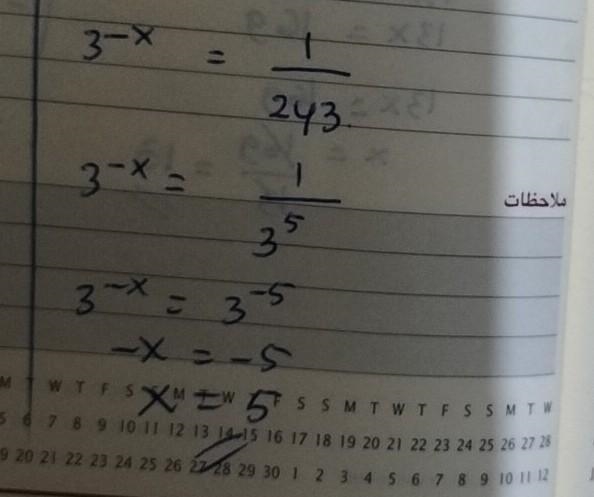 3^{-x} = \frac{1}{243}
3^{-x} = \frac{1}{3^5}
ملاحظات
3^{-x} = 3^{-5}
-x = -5
x = 5
M T W T F S S M T W T F S S M T W T F S S M T W
5 6 7 8 9 10 11 12 13 14 15 16 17 18 19 20 21 22 23 24 25 26 27 28
19 20 21 22 23 24 25 26 27 28 29 30 1 2 3 4 5 6 7 8 9 10 11 12